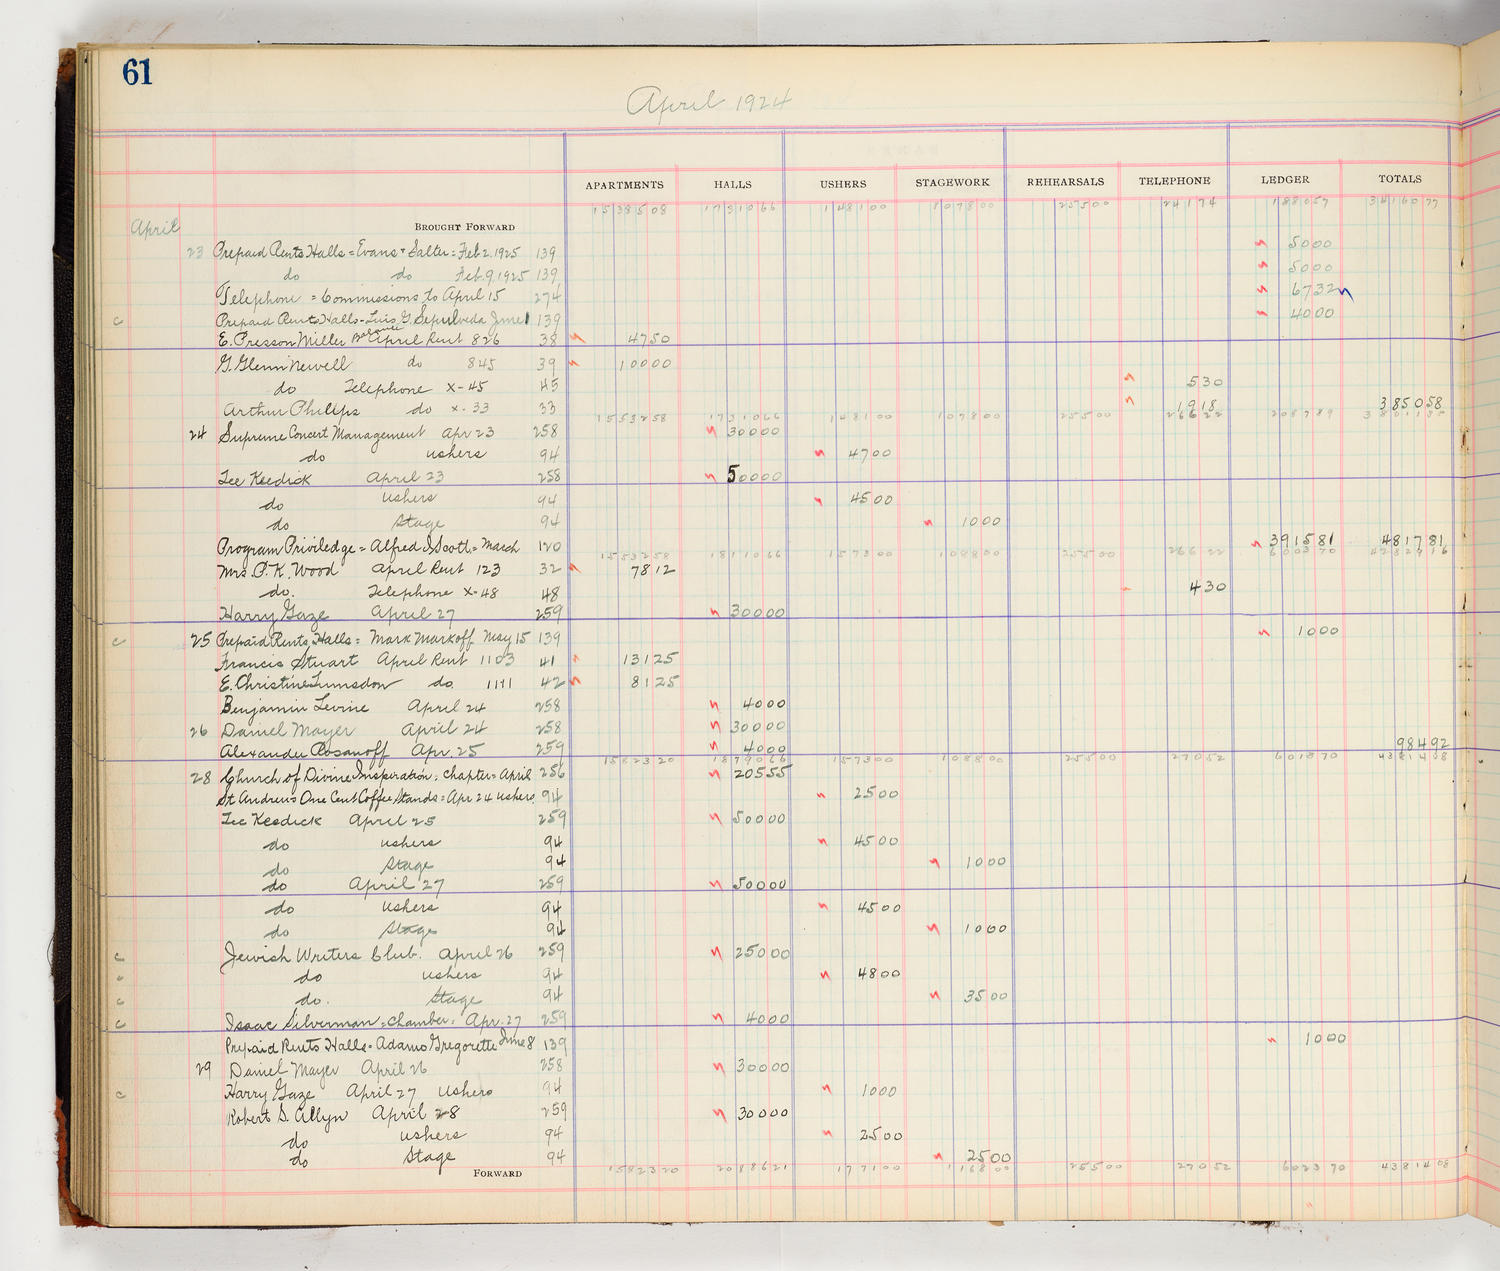 61
April 1924
APARTMENTS HALLS USHERS STAGEWORK REHEARSALS TELEPHONE LEDGER TOTALS
1538508 1731066 148100 107800 25500 24174 188057 3416077
April BROUGHT FORWARD
23 Prepaid Rents Halls = Evans + Salter = Feb 2. 1925 139 5000
do do Feb. 9, 1925 139 5000
Telephone = Commissions to April 15 274 6732
c Prepaid Rents Halls - Luis G. Sepulveda June 1 139 4000
E. Presson Miller Balance April Rent 826 38 4750
G. Glenn Newell do 845 39 10000
do Telephone X-45 45 530
Arthur Philips do X-33 33 1918 385058
1553258 1731066 148100 107800 25500 26622 208789
24 Supreme Concert Management Apr 23 258 30000
do ushers 94 4700
Lee Keedick April 23 258 50000
do ushers 94 4500
do Stage 94 1000
Program Priviledge = Alfred Scott = March 120 391581 481781
1553258 1811066 157300 108800 25500 26622 600370 4282916
Mrs. P. K. Wood April Rent 123 32 7812
do. Telephone X-48 48 430
Harry Gaze April 27 259 30000
c 25 Prepaid Rents, Halls = Mark Markoff May 15 139 1000
Francis Stuart April Rent 1103 41 13125
E. Christine Lumsdon do. 1111 42 8125
Benjamin Levine April 24 258 4000
26 Daniel Mayer April 24 258 30000
Alexander Rosanoff Apr. 25 259 4000 98492
1582320 1879066 157300 108800 25500 27052 601370 4381408
28 Church of Divine Inspiration, Chapter = April 256 20555
St Andrews One Cent Coffee Stands = Apr 24 ushers 94 2500
Lee Keedick April 25 259 50000
do ushers 94 4500
do Stage 94 1000
do April 27 259 50000
do ushers 94 4500
do Stage 94 1000
c Jewish Writers Club. April 26 259 25000
c do ushers 94 4800
c do. Stage 94 3500
c Isaac Silverman = Chamber, Apr. 27 259 4000
Prepaid Rents Halls = Adamo Gregorette June 8 139 1000
29 Daniel Mayer April 26 258 30000
c Harry Gaze April 27 ushers 94 1000
Robert S. Allyn April 28 259 30000
do ushers 94 2500
do Stage 94 2500
FORWARD 1582320 2088621 177100 116800 25500 27052 602370 4381408